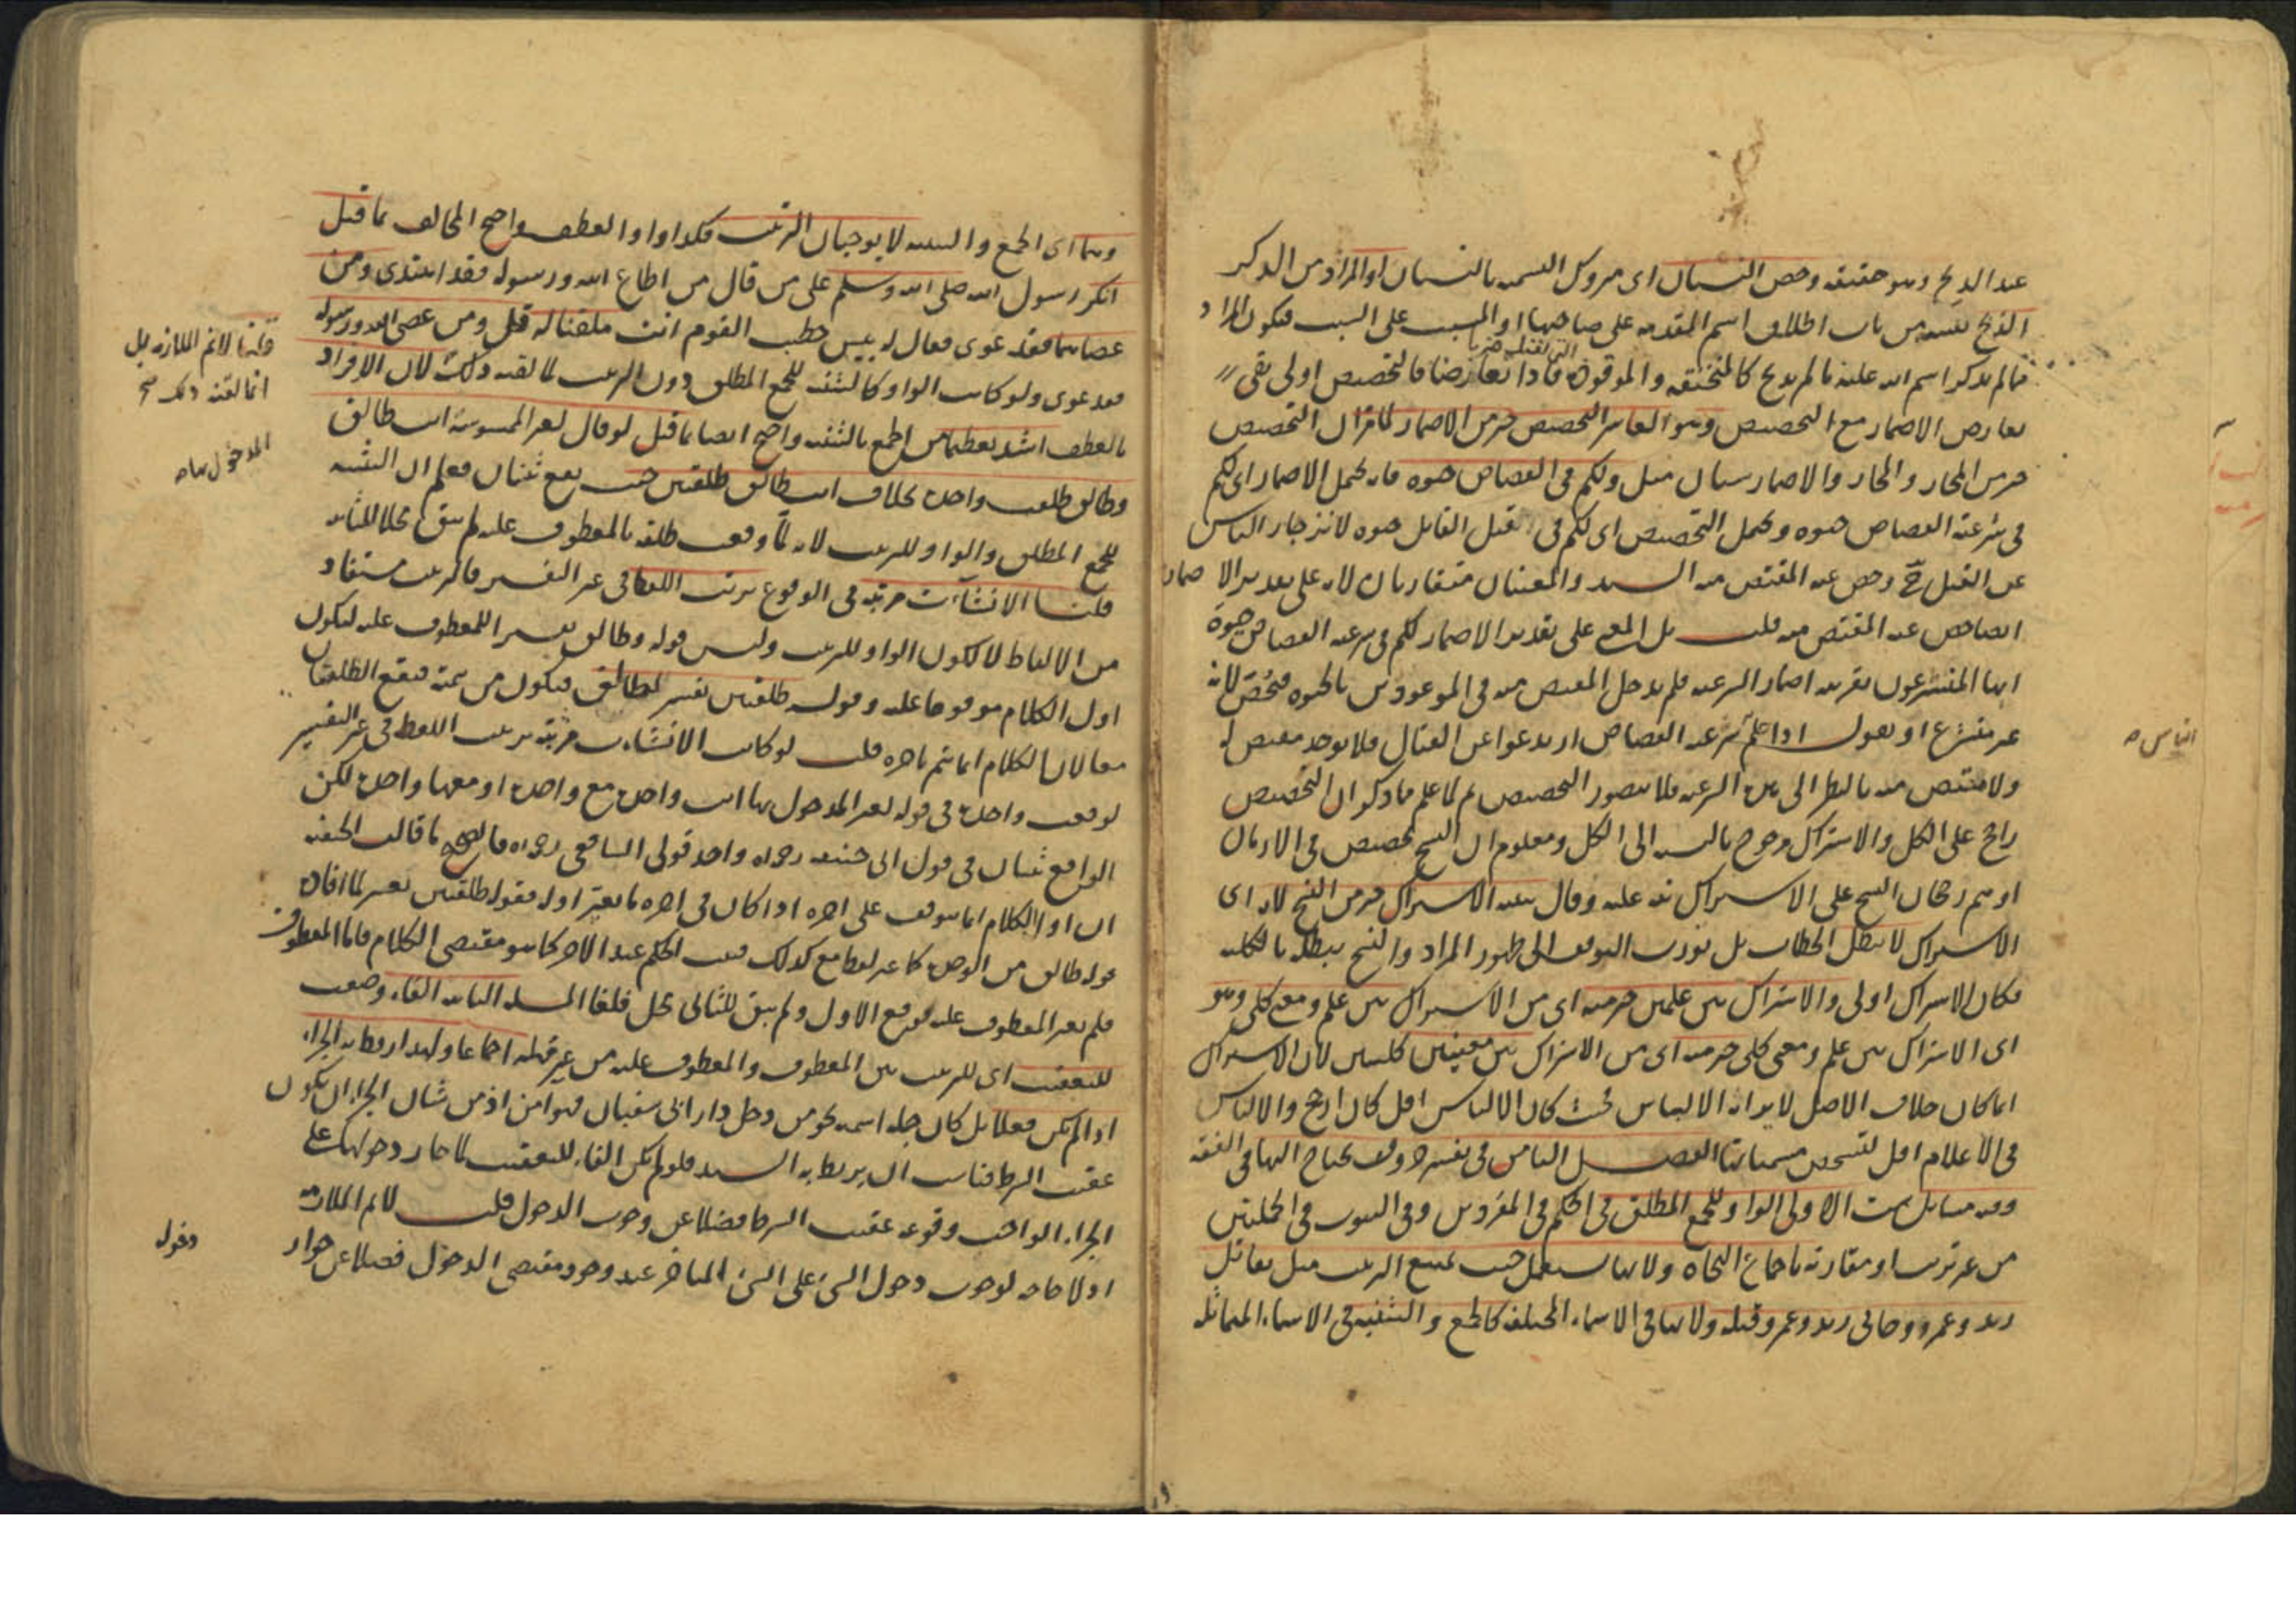 عند الذبح وهو حقيقة وخص النسيان اى متروك التسمية بالنسيان او المراد من الذكر
الذبح نفسه من باب اطلاق اسم المقدمة على صاحبها او المسبب على السبب فيكون المراد
مما لم يذكر اسم الله عليه ما لم يذبح كالمنخنقة والموقوذة فاذا تعارضا فالتخصيص اولى بقى
تعارض الاضمار مع التخصيص وهو العاشر التخصيص خير من الاضمار لما مر ان التخصيص
خير من المجاز والمجاز والاضمار سيان مثل ولكم فى القصاص حيوة فانه يحتمل الاضمار اى لكم
فى شرعية القصاص حيوة ويحتمل التخصيص اى لكم فى القتل القاتل حيوة لانزجار الناس
عن القتل ح وخص عنه المقتص منه السيد والمعنيان متقاربان لانه على تقدير الاضمار
ايضا خص عنه المقتص منه قلت بل المعنى على تقدير الاضمار لكم فى شرعية القصاص حيوة
ايها المتشرعون بقرينة اضمار الشرعية فلم يدخل المقتص منه فى الموعودين بالحيوة فيخص لانه
غير متشرع او نقول اذا علم شرعية القصاص ارتدعوا عن القتال فلا يوجد مقتص له
ولا مقتص منه بالنظر الى الشرعية فلا يتصور التخصيص ثم لما علم مما ذكر ان التخصيص
راجح على الكل والاشتراك مرجوح بالنسبة الى الكل ومعلوم ان النسخ تخصيص فى الازمان
اوهم رجحان النسخ على الاشتراك نبه عليه وقال تنبيه الاشتراك خير من النسخ لانه اى
الاشتراك لا يبطل الخطاب بل يورث التوقف الى ظهور المراد والنسخ يبطله بالكلية
فكان الاشتراك اولى والاشتراك بين علمين خير منه اى من الاشتراك بين علم ومعنى كلى وهو
اى الاشتراك بين علم ومعنى كلى خير منه اى من الاشتراك بين معنيين كليين لان الاشتراك
انما كان خلاف الاصل لايراث الالتباس فحيث كان الالتباس اقل كان ارجح والالتباس
فى الاعلام اقل لتشخص مسمياتها الفصل الثامن فى تفسير حروف يحتاج اليها فى الفقه
وفيه مسائل ست الاولى الواو للجمع المطلق فى الحكم فى المفردين وفى الثبوت فى الجملتين
من غير ترتيب او مقارنة باجماع النحاة ولانها تستعمل حيث يمتنع الترتيب مثل تقاتل
زيد وعمرو وجاءنى زيد وعمرو قبله ولانها فى الاسماء المختلفة كالجمع والتثنية فى الاسماء المتماثلة
الناس
وهما اى الجمع والتثنية لا يوجبان الترتيب فكذا واو العطف واحتج المخالف بما قيل
انكر رسول الله صلى الله وسلم على من قال من اطاع الله ورسوله فقد اهتدى ومن
عصاهما فقد غوى فقال له بئس خطيب القوم انت ملقنا له قل ومن عصى الله ورسوله
فقد غوى ولو كانت الواو كالتثنية للجمع المطلق دون الترتيب لما لقنه ذلك لان الافراد
بالعطف اشد تعظيما من الجمع بالتثنية واحتج ايضا بما قيل لو قال لغير الممسوسة انت طالق
وطالق طلقت واحدة بخلاف انت طالق طلقتين حيث يقع ثنتان فعلم ان التثنية
للجمع المطلق والواو للترتيب لانه لما وقعت طلقة بالمعطوف عليه لم يبق محلا للثانية
قلنا الانشاآت مرتبة فى الوقوع بترتب اللفظ فى غير التفسير فالترتيب مستفاد
من الالفاظ لا لكون الواو للترتيب وليس قوله وطالق تفسيرا للمعطوف عليه ليكون
اول الكلام موقوفا عليه وقوله طلقتين تفسير لطالق فيكون من تتمته فيقع الطلقتان
معا لان الكلام انما يتم باخره قلت لو كانت الانشاآت مرتبة بترتيب اللفظ فى غير التفسير
لوقعت واحدة فى قوله لغير المدخول بها انت واحدة مع واحدة او معها واحدة لكن
الواقع ثنتان فى قول ابى حنيفة رحمه الله واحد قولى الشافعى رحمه الله فالصحيح ما قالت الحنفية
ان اول الكلام انما يتوقف على اخره اذا كان فى اخره ما يغير اوله فقوله طلقتين تغيير لما افاده
قوله طالق من الوحدة كما غير لفظ مع كذلك فيقف الحكم عند الاخر كما هو مقتضى الكلام فاما المعطوف
فلم يغير المعطوف عليه فوقع الاول ولم يبق للثانى محل فلغا المسئلة الثانية الفاء وضعت
للتعقيب اى للترتيب بين المعطوف والمعطوف عليه من غير مهلة اجماعا ولهذا ربط به الجزاء
اذا لم يكن فعلا بل كان جملة اسمية نحو من دخل دار ابى سفيان فهو امن اذ من شان الجزاء ان يكون
عقيب الشرط فناسب ان يربط به السيد فلو لم يكن الفاء للتعقيب لما جاز دخولها على
الجزاء الواجب وقوعه عقيب الشرط فضلا عن وجوب الدخول قلت لا نم الملازمة
اولا حاجة لوجوب دخول الشئ على الشئ المتاخر عند وجود مقتضى الدخول فضلا عن جواز
قلنا لا نم الملازمة بل
انما لقنه ذلك صح
المدخول بها صح
دخوله